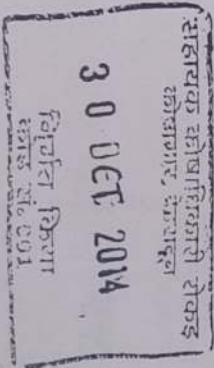 सहायक कोषाधिकारी रोकड़
कोषागार, देहरादून
30 OCT 2014
निर्गत किया
कोड सं. 001